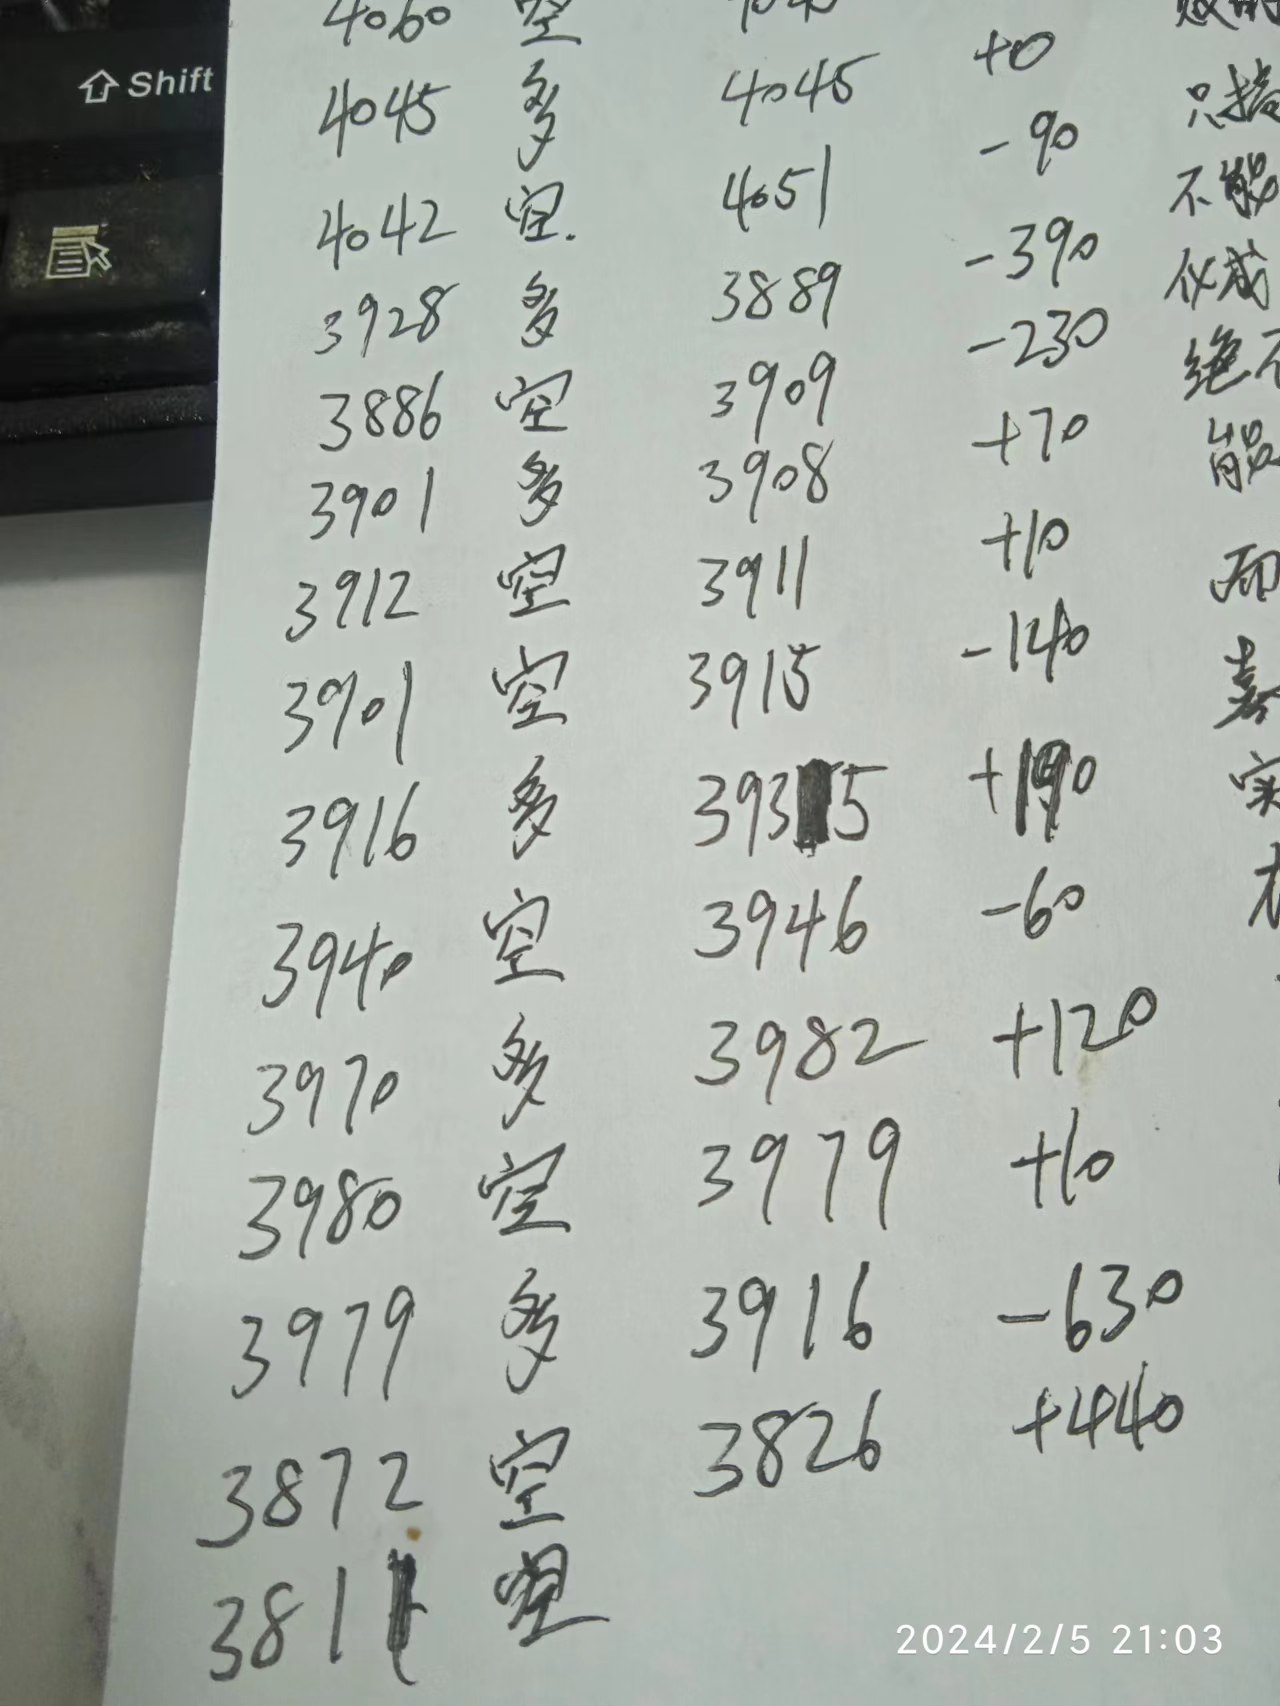 Shift
4060 空
4045 多 4045 +0
4042 空. 4051 -90
3928 多 3889 -390
3886 空 3909 -230
3901 多 3908 +70
3912 空 3911 +10
3901 空 3915 -140
3916 多 3935 +190
3940 空 3946 -60
3970 多 3982 +120
3980 空 3979 +10
3979 多 3916 -630
3872 空 3826 +440
3811 空
只
不能
绝不
能
而
2024/2/5 21:03